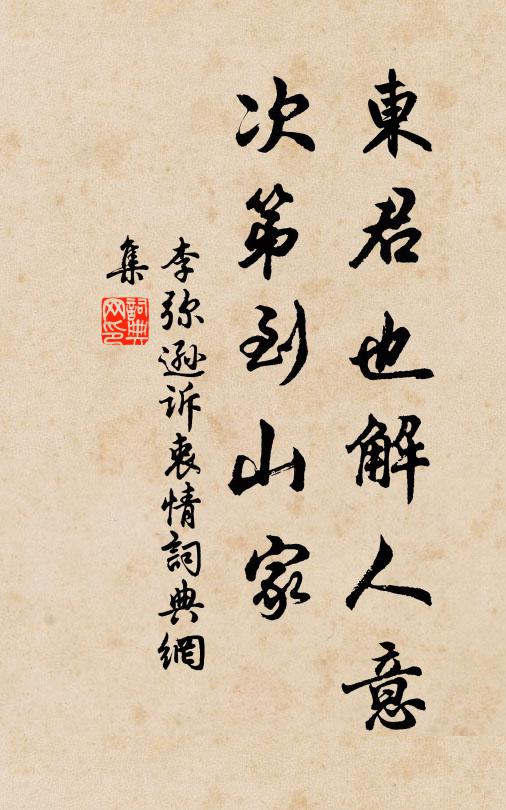 東君也解人意
次第到山家
李弥遜訴衷情詞典網
集
詞典网印